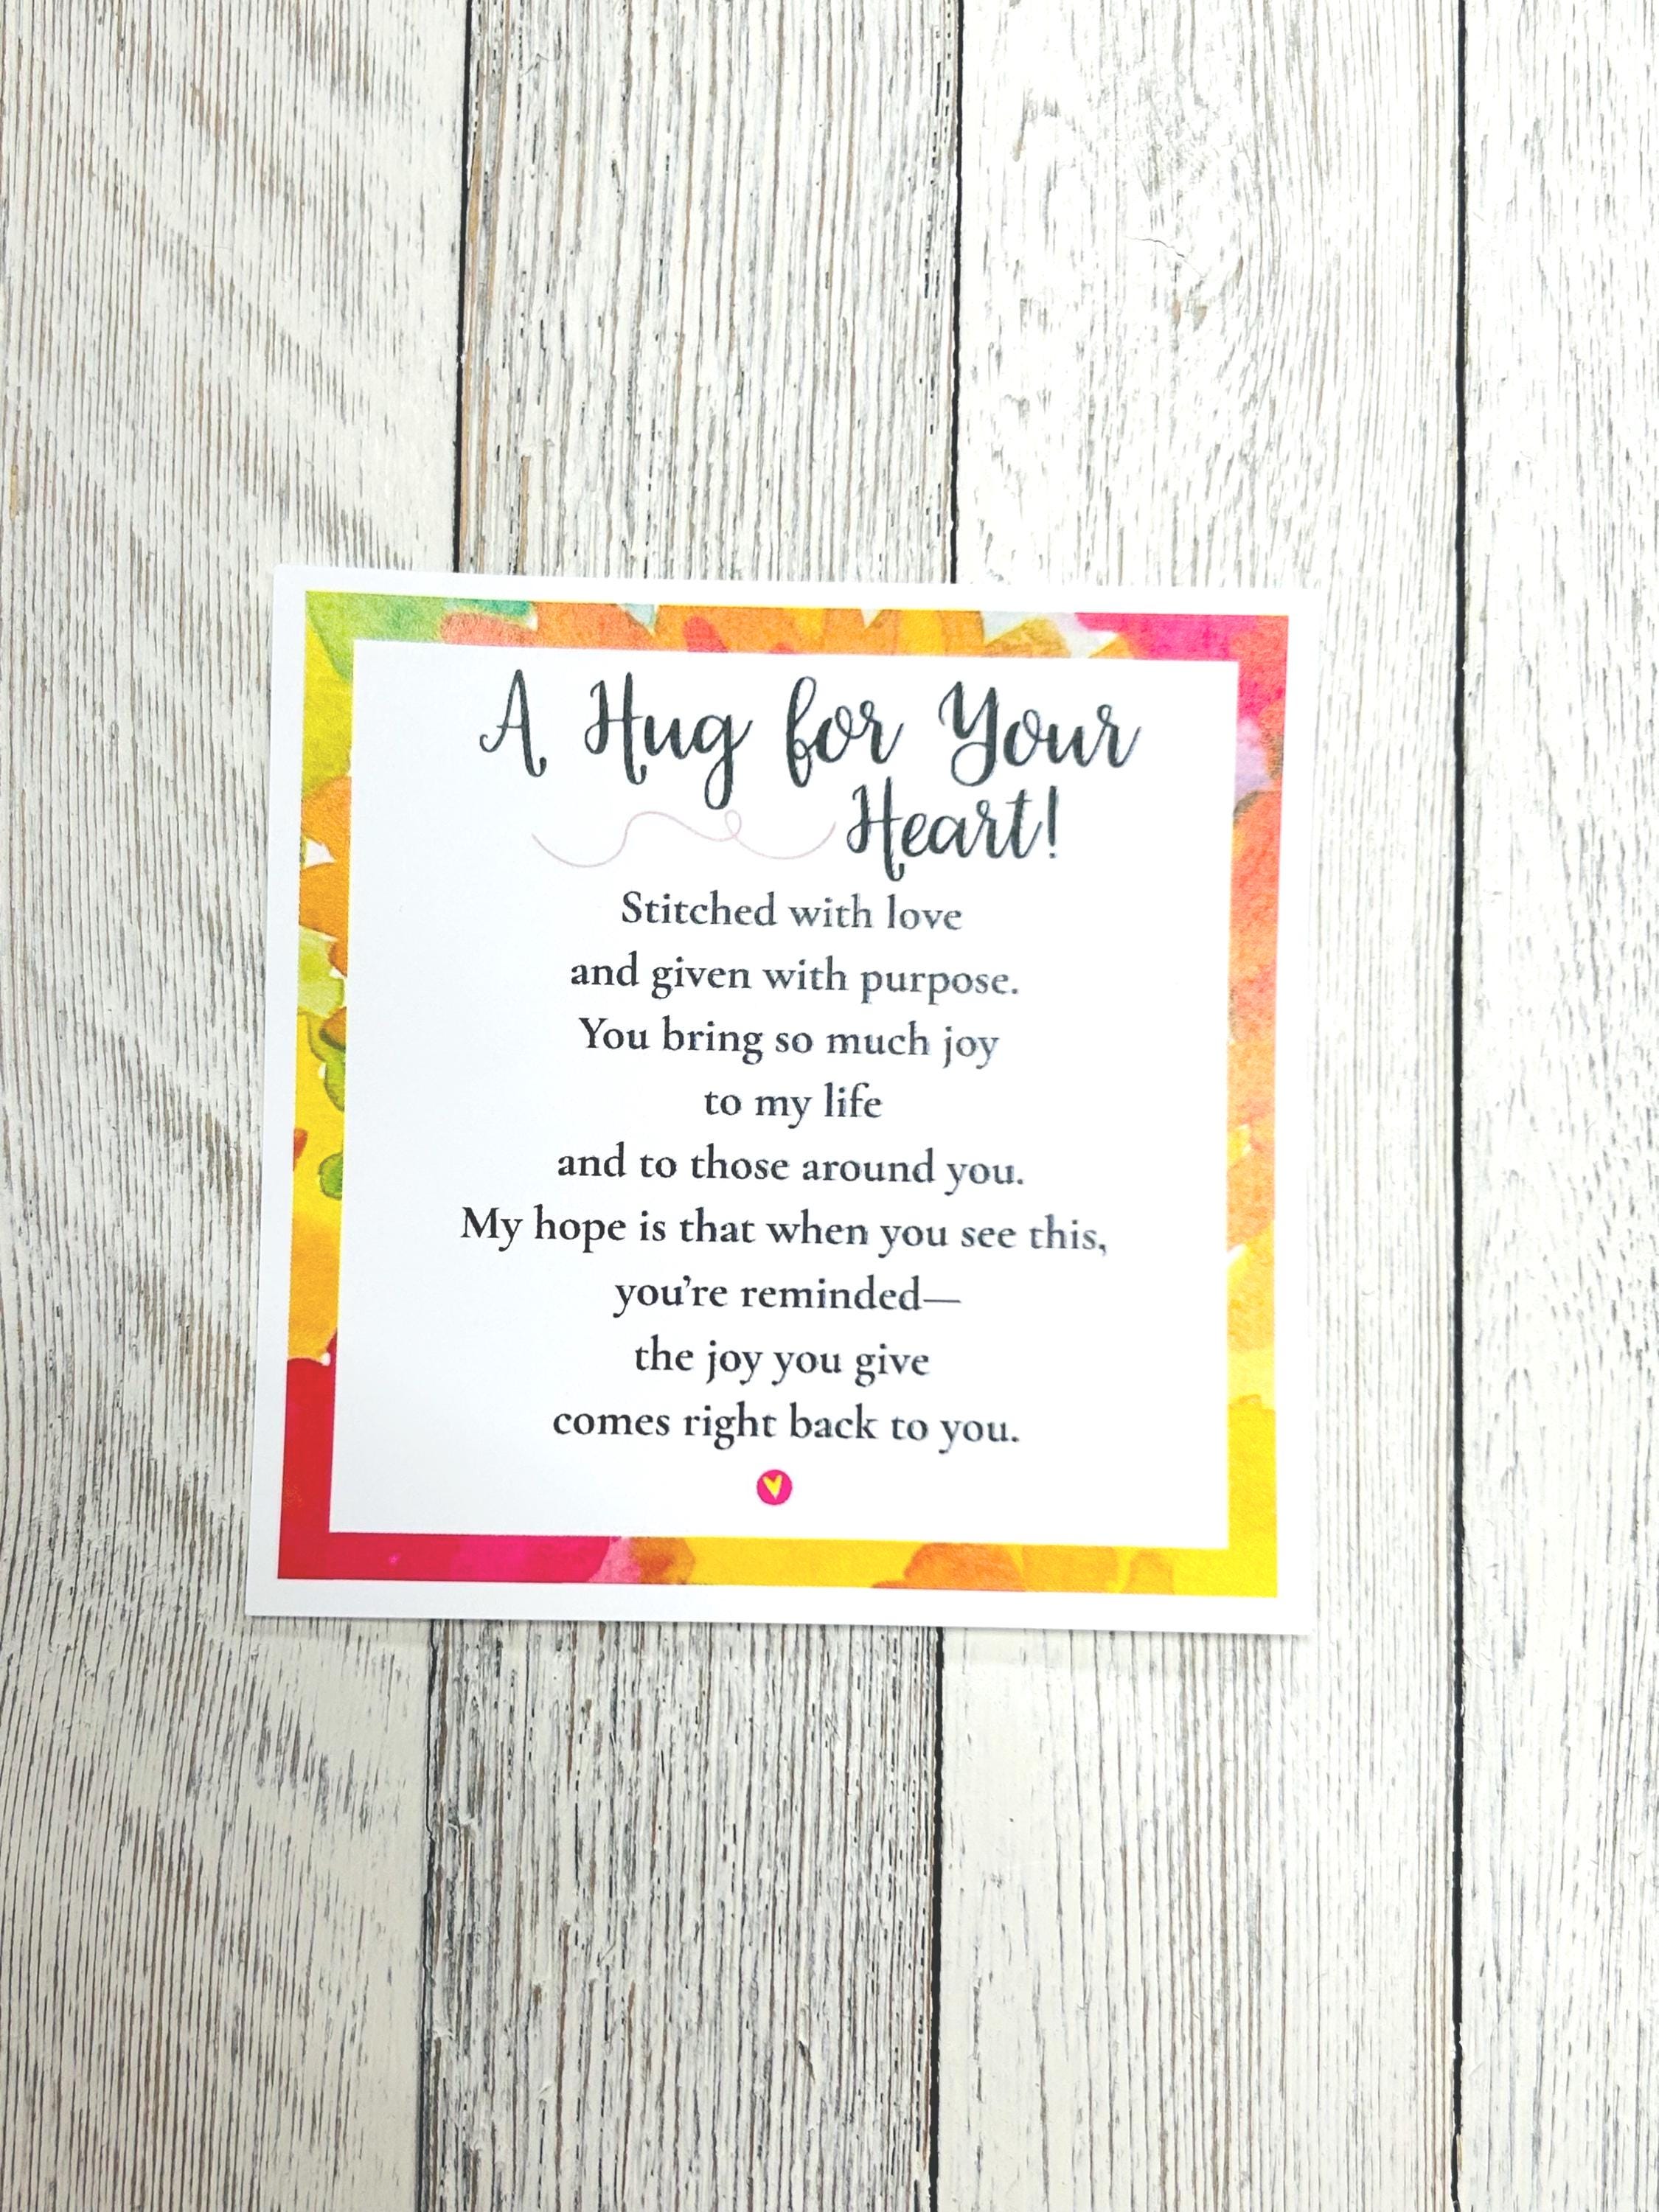 A Hug for Your
Heart!
Stitched with love
and given with purpose.
You bring so much joy
to my life
and to those around you.
My hope is that when you see this,
you're reminded—
the joy you give
comes right back to you.